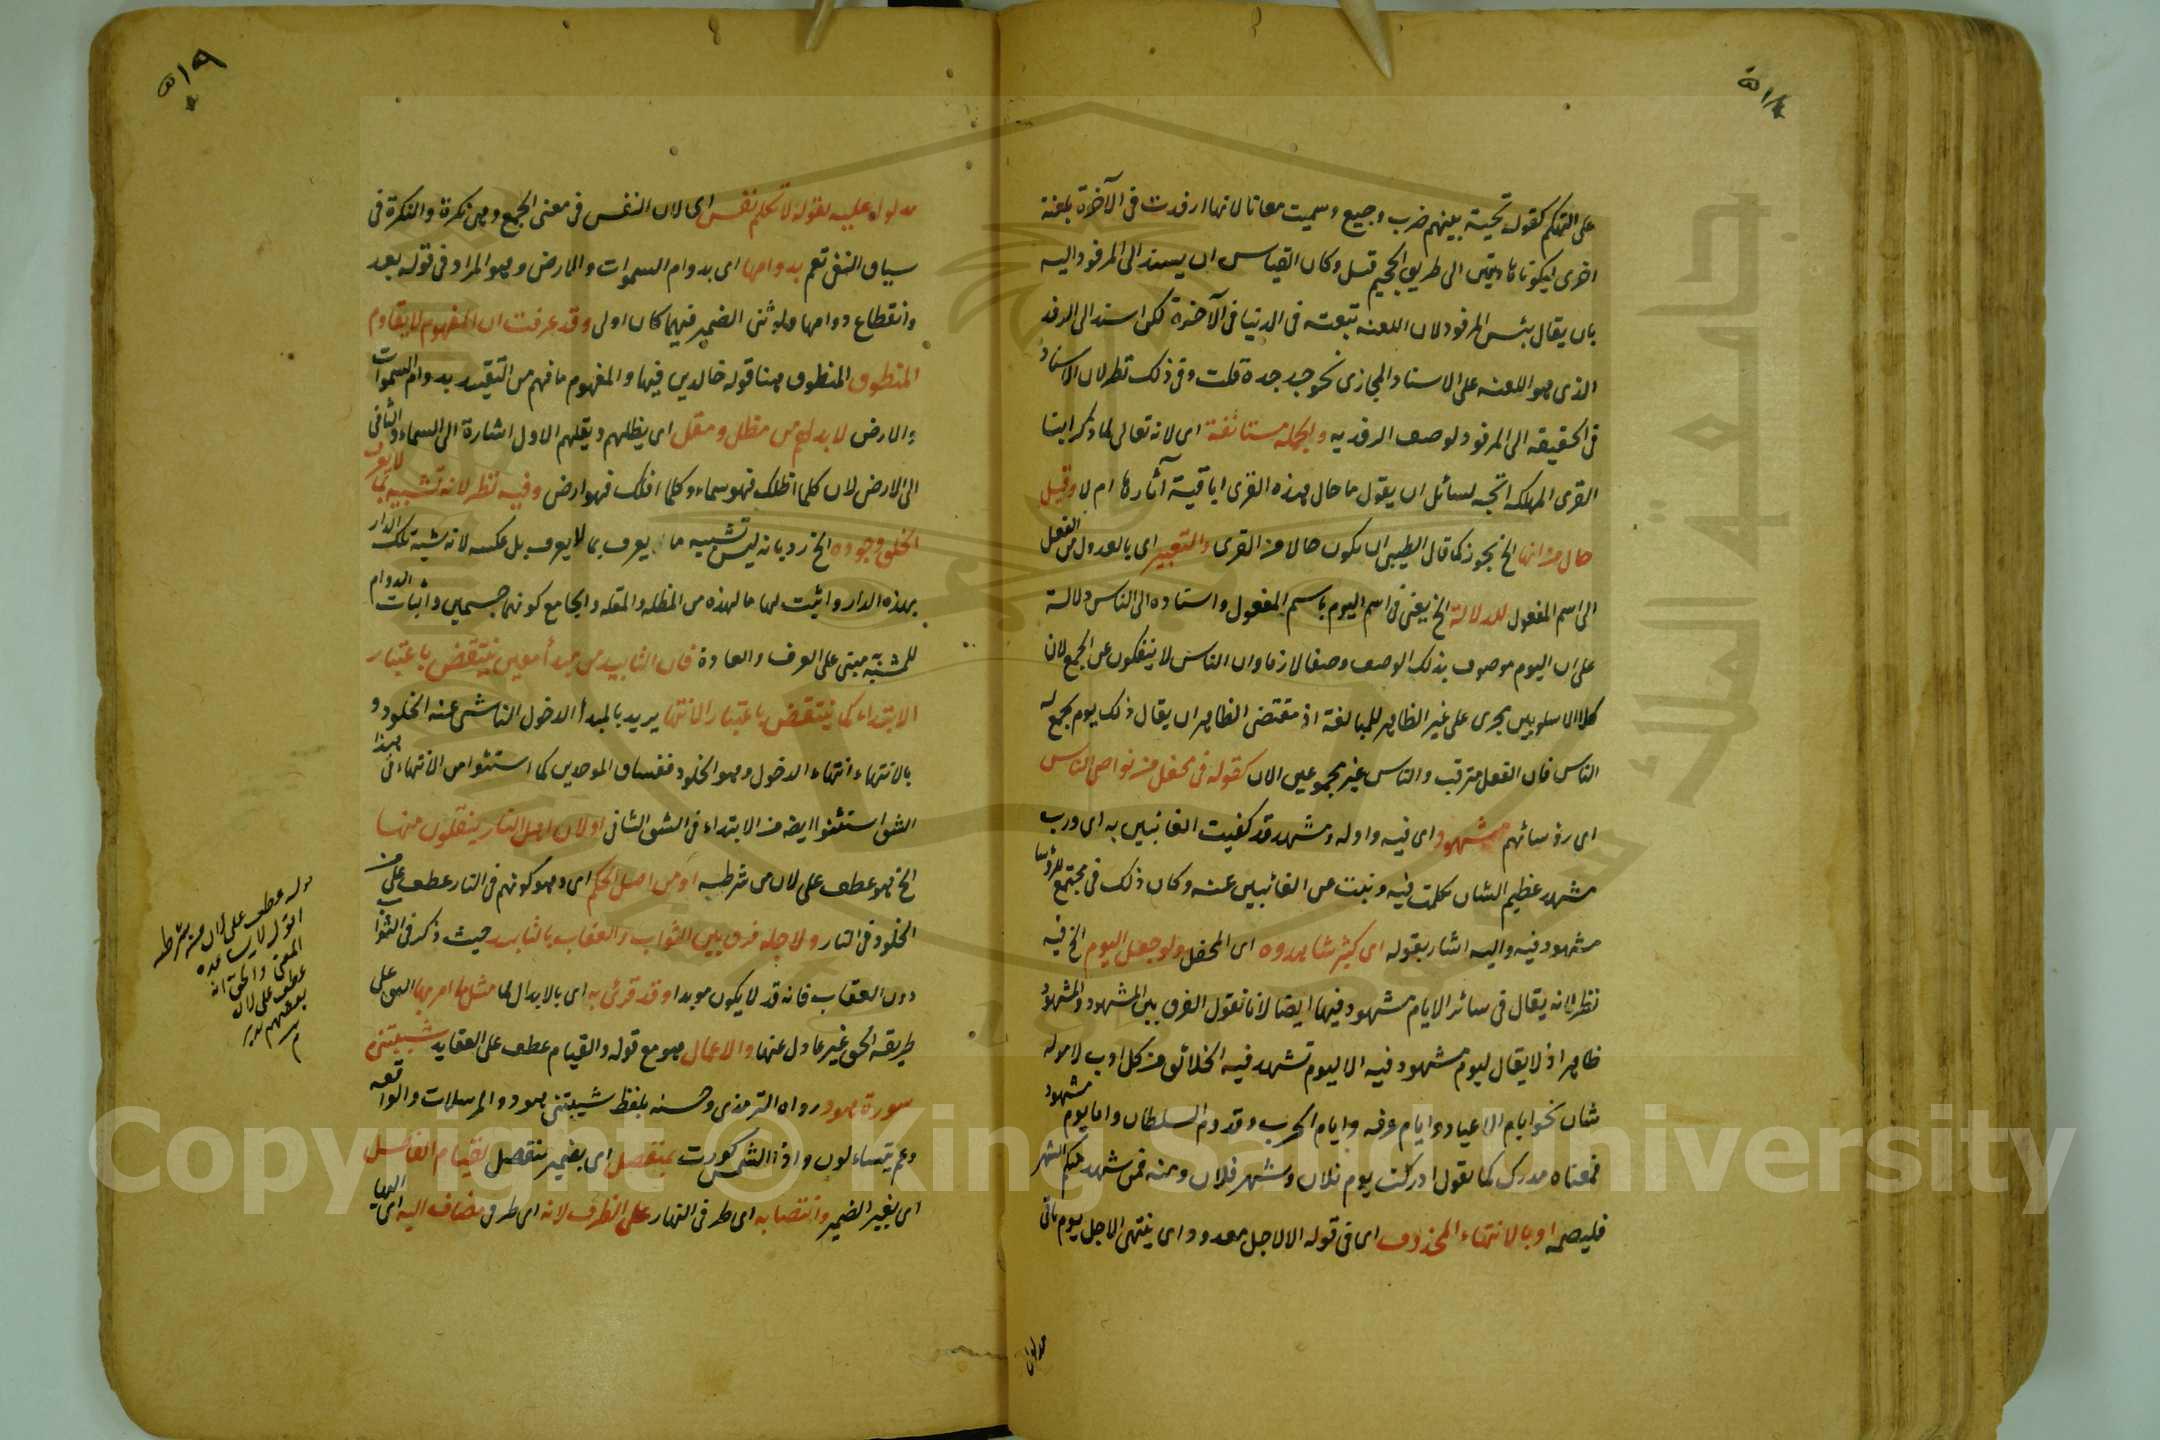 على التهكم كقوله تحية بينهم ضرب وجيع وسميت معانا لانها ارفدت في الآخرة بلعنة
اخرى ليكونا هاديتين الى طريق الجحيم قيل وكان القياس ان يسند الى المرفود اليه
بان يقال بئس المرفود لان اللعنه تبعته في الدنيا في الآخرة لكن اسند الى الرفد
الذي هو اللعنه على الاسناد المجازى نحو جد جده قلت وفي ذلك نظر لان الاسناد
في الحقيقه الى المرفود لوصف الرفد به والجملة مستانفة اى لانه تعالى لما ذكر انبا
القرى المهلكه اتجه لسائل ان يقول ما حال هذه القرى اباقية آثارها ام لا وقيل
حال من انها الخ يجوز كما قال الطيبي ان يكون حالا من القرى والتعبير اى بالعدول من الفعل
الى اسم المفعول للدلالة الخ يعنى في اسم اليوم باسم المفعول واسناده الى الناس دلالة
على ان اليوم موصوف بذلك الوصف وصفا لازما وان الناس لا ينفكون عن الجمع لان
كلا الاسلوبين يجرى على غير الظاهر للمبالغة اذ مقتضى الظاهر ان يقال ذلك يوم يجمع له
الناس فان الفعل مترقب والناس غير مجموعين الان كقوله في محفل من نواصى الناس
اى رؤسائهم مشهود اى فيه واوله ومشهد قد كفيت الغائبين به اى ورب
مشهد عظيم الشان تكلمت فيه ونبت من الغائبين عنه وكان ذلك في مجتمع للرؤسا
مشهود فيه واليه اشار بقوله اى كثير شاهدوه اى المحفل ولو جعل اليوم الخ فيه
نظر لانه يقال في سائر الايام مشهود فيها ايضا لانا نقول الفرق بين المشهود والمشهود
ظاهر اذ لا يقال ليوم مشهود فيه الا ليوم تشهد فيه الخلائق من كل اوب لامر له
شان نحو ايام الاعياد وايام عرفه وايام الحرب وقدوم السلطان واما يوم مشهود
فمعناه مدرك كما تقول ادركت يوم فلان وشهر فلان ومنه فمن شهد منكم الشهر
فليصمه او بالانتهاء المحذوف اى في قوله الا لاجل معدود اى ينتهى الاجل يوم ياتى
مدلول
٥١٩
مدلول عليه بقوله لا تكلم نفس اى لان النفس في معنى الجمع وهى نكرة والنكرة في
سياق النفى تعم بدوامها اى بدوام السموات والارض وهو المراد في قوله بعد
وانقطاع دوامها ولو ثنى الضمير فيهما كان اولى وقد عرفت ان المفهوم لا يقاوم
المنطوق المنطوق هنا قوله خالدين فيها والمفهوم ما فهم من التقييد بدوام السموات
والارض لا بد لهم من مظل ومقل اى يظلهم ويقلهم الاول اشارة الى السماء والثانى
الى الارض لان كلما اظلك فهو سماء وكلما اقلك فهو ارض وفيه نظر لانه تشبيه بما لا يعرف
الخلق وجوده الخ رد بانه ليس تشبيه ما يعرف بما لا يعرف بل عكسه لانه شبه تلك الدار
بهذه الدار واثبت لها ما لهذه من المظله والمقله والجامع كونهما جسمين واثبات الدوام
للمشبه به مبنى على العرف والعادة فان التابيد من مبدأ معين ينتقض باعتبار
الابتداء كما ينتقض باعتبار الانتها يريد بالمبدأ الدخول الناشى عنه الخلود و
بالانتهاء انتهاء الدخول وهو الخلود ففساق الموحدين كما استثنوا من الانتهاء في هذا
الشق استثنوا ايضا من الابتداء في الشق الثانى اولان اهل النار ينقلون منها
الخ هو عطف على لان من شرطيه او من اصل الحكم اى وهو كونهم في النار عطف على من
الخلود في النار ولاجله فرق بين الثواب والعقاب بالتابيد حيث ذكر في الثواب
دون العقاب فانه قد لا يكون موبدا وقد قرئ به اى بالابدال لما مثل ما امر بها اى على
طريقه الحق غير عادل عنها والاعمال هو مع قوله والقيام عطف على العقايد شيبتنى
سورة هود رواه الترمذى وحسنه بلفظ شيبتنى هود والمرسلات والواقعه
وعم يتساءلون واذا الشمس كورت بمنفصل اى بضمير منفصل لقيام الفاصل
اى بغير الضمير وانتصابه اى طرفى النهار على الظرف لانه اى طرفى مضاف اليه اى الى النهار
قوله عطف على لان من شرطه
القول لا يساعده
المعنى والحق انه
عطف على لان
بعضهم